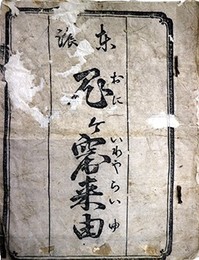 東
鬼ヶ窟来由
おに いわやらいゆ